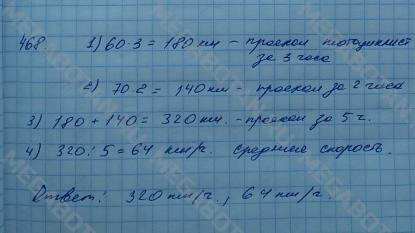 468. 1) 60·3 = 180 км - проехал мотоциклист
за 3 часа
2) 70·2 = 140 км - проехал за 2 часа
3) 180 + 140 = 320 км. - проехал за 5 ч.
4) 320 : 5 = 64 км/ч. средняя скорость.
Ответ: 320 км/ч., 64 км/ч.